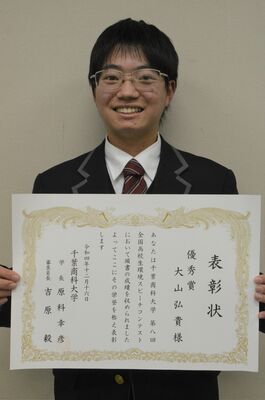 表彰状
優秀賞
大山弘貴様
あなたは千葉商科大学 第八回
全国高校生環境スピーチコンテスト
において頭書の成績を収められました
よってここにその学習を称え表彰
します
令和四年十二月十六日
千葉商科大学
学長 原科幸彦
審査員長 吉原毅